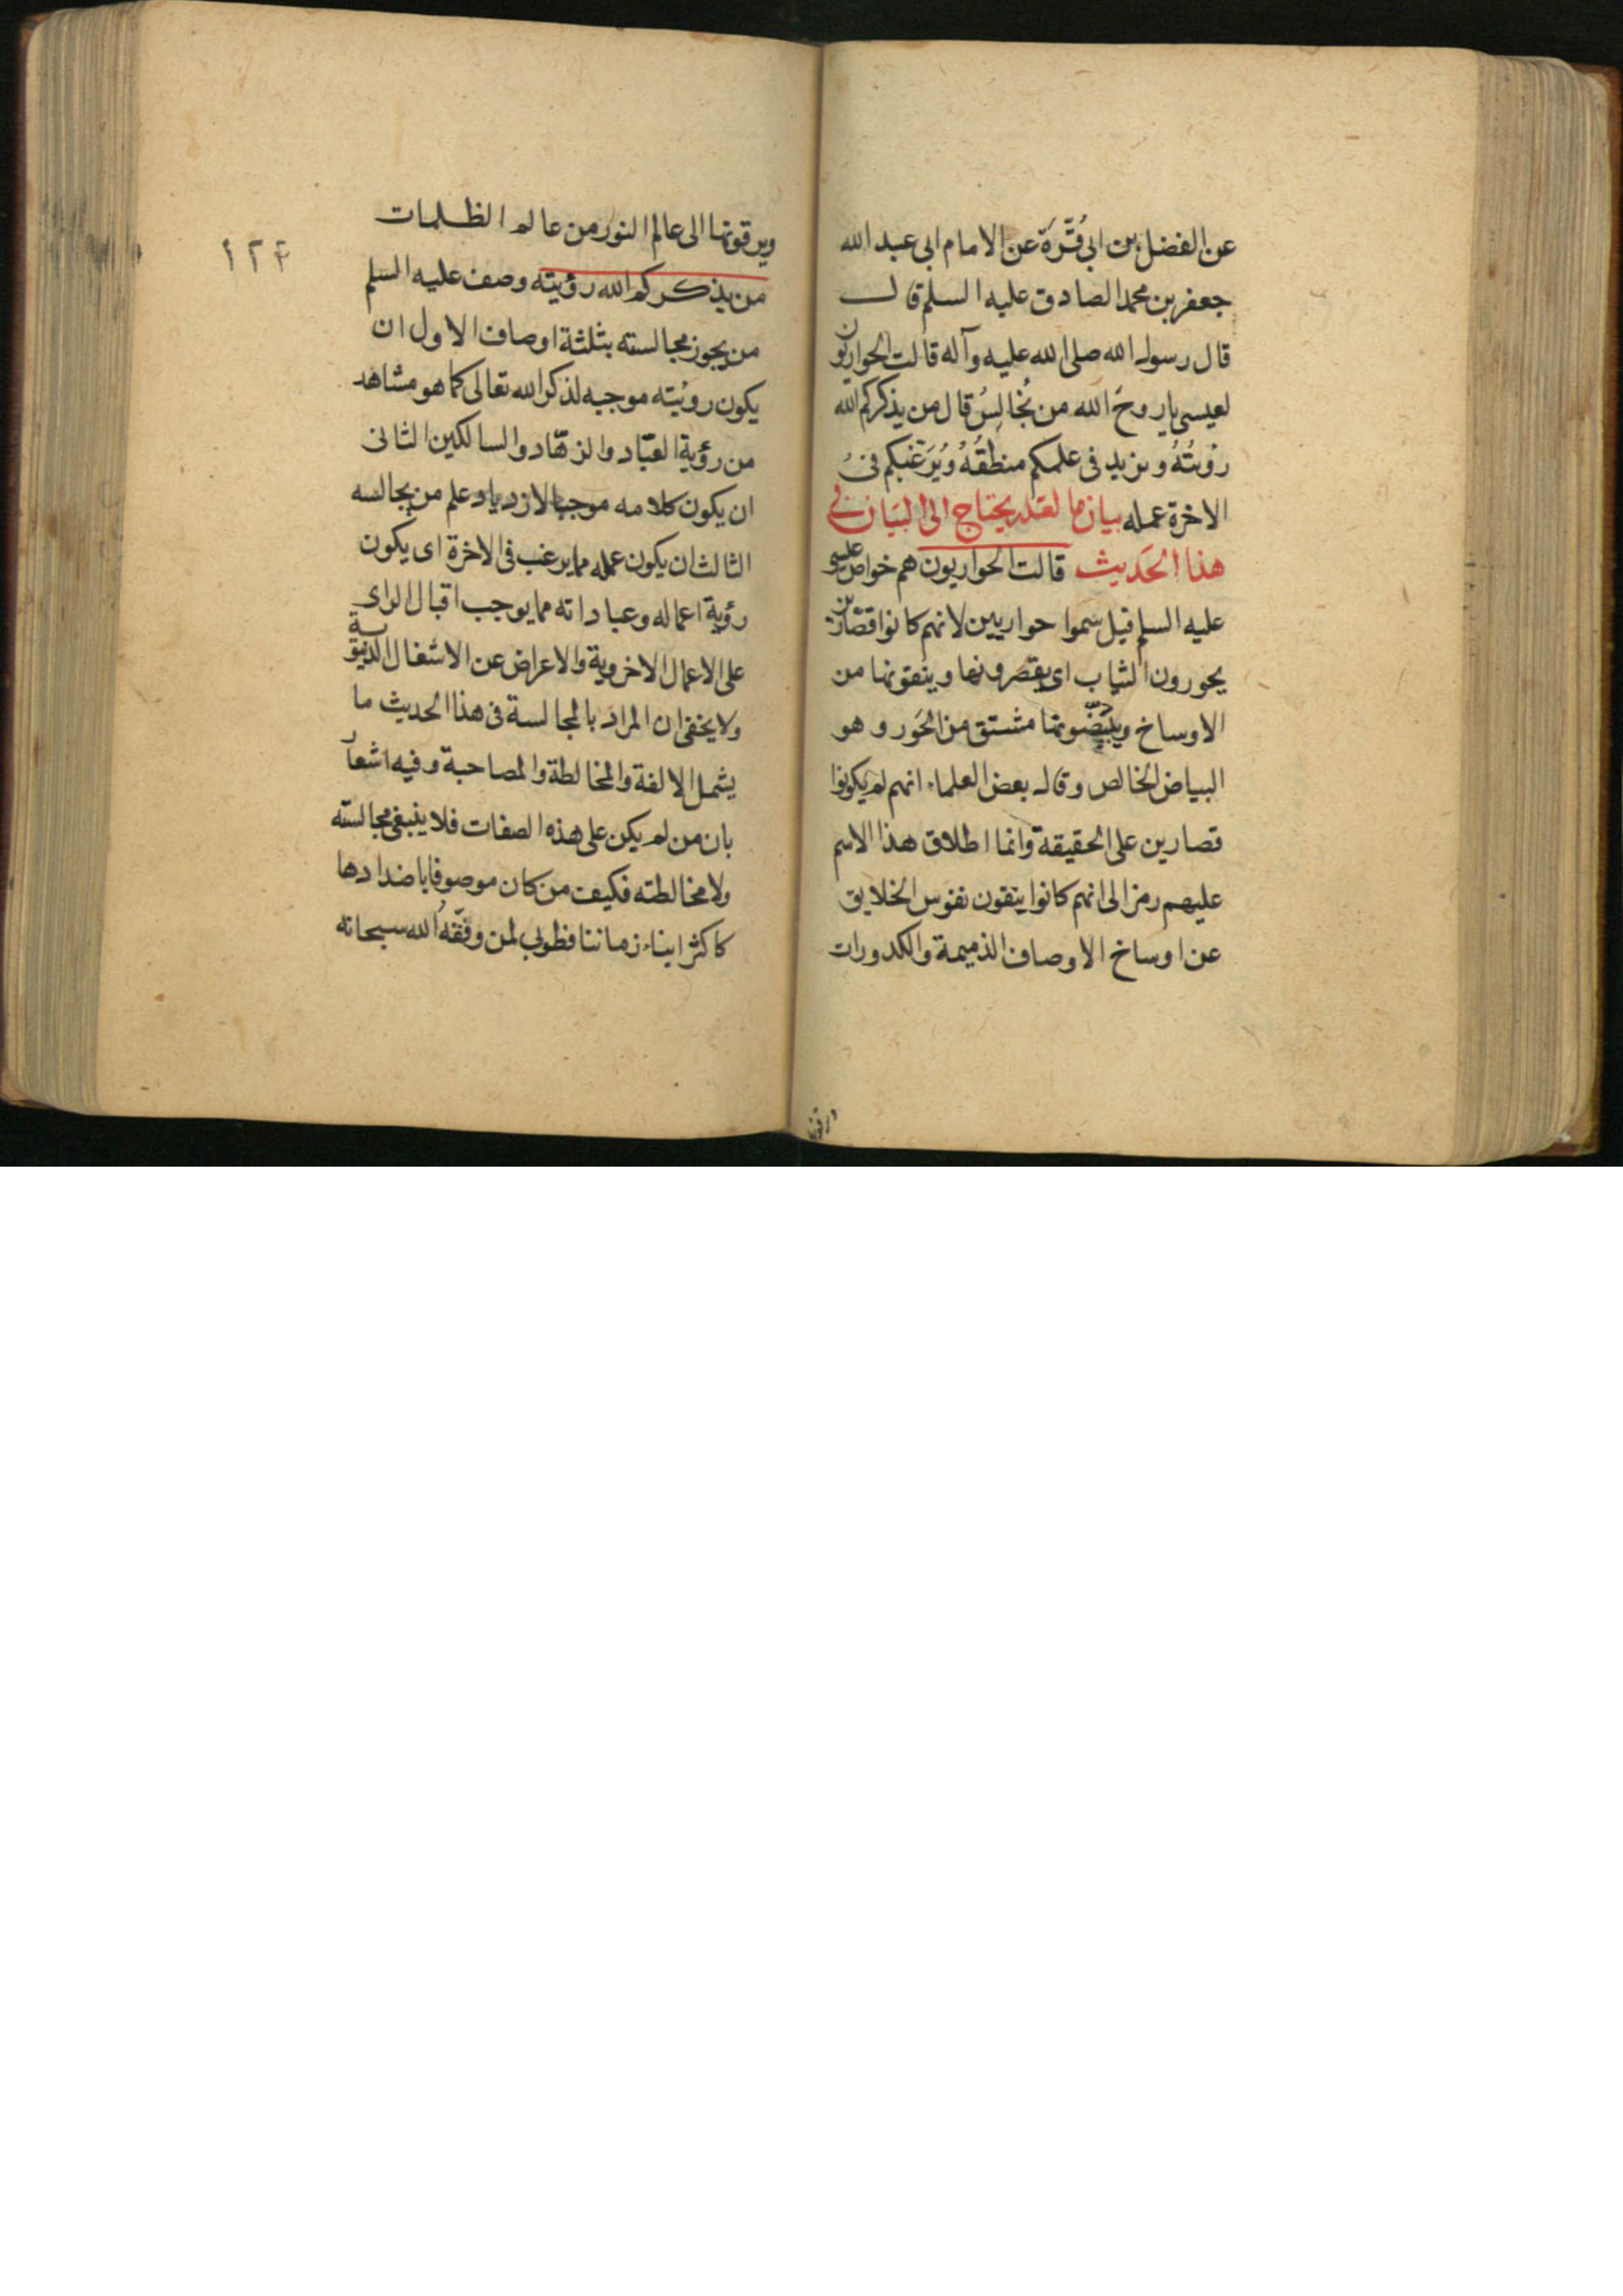 عن الفضل بن ابي قُرَّة عن الامام ابي عبد الله
جعفر بن محمد الصادق عليه السلم قال
قال رسول الله صلى الله عليه وآله قالت الحواريون
لعيسى يا روحَ الله من نُجَالِسُ قال من يذكركم الله
رؤيتُهُ ويزيد فى علمكم منطقُهُ ويُرَغبكم فى
الاخرة عمله بيان ما لعله يحتاج الى البيان فى
هذا الحديث قالت الحواريون هم خواص عيسى
عليه السلم قيل سموا حواريين لانهم كانوا قصّارين
يحورون الثياب اى يقصرونها وينقونها من
الاوساخ ويبيّضونها مشتق من الحَور وهو
البياض الخالص وقال بعض العلماء انهم لم يكونوا
قصارين على الحقيقة وانما اطلاق هذا الاسم
عليهم رمز الى انهم كانوا ينقون نفوس الخلايق
عن اوساخ الاوصاف الذميمة والكدورات
ويرقونها
ويرقونها الى عالم النور من عالم الظلمات
١٢٤
من يذكركم الله رؤيته وصف عليه السلم
من يجوز مجالسته بثلثة اوصاف الاول ان
يكون رؤيته موجبه لذكر الله تعالى كما هو مشاهد
من رؤية العبّاد والزهّاد والسالكين الثانى
ان يكون كلامه موجبا لازدياد علم من يجالسه
الثالث ان يكون عمله مما يرغب فى الاخرة اى يكون
رؤية اعماله وعباداته مما يوجب اقبال الراى
على الاعمال الاخروية والاعراض عن الاشغال الدنيوية
ولا يخفى ان المراد بالمجالسة فى هذا الحديث ما
يشمل الالفة والمخالطة والمصاحبة وفيه اشعار
بان من لم يكن على هذه الصفات فلا ينبغى مجالسته
ولا مخالطته فكيف من كان موصوفا باضدادها
كاكثر ابناء زماننا فطوبى لمن وفّقه الله سبحانه